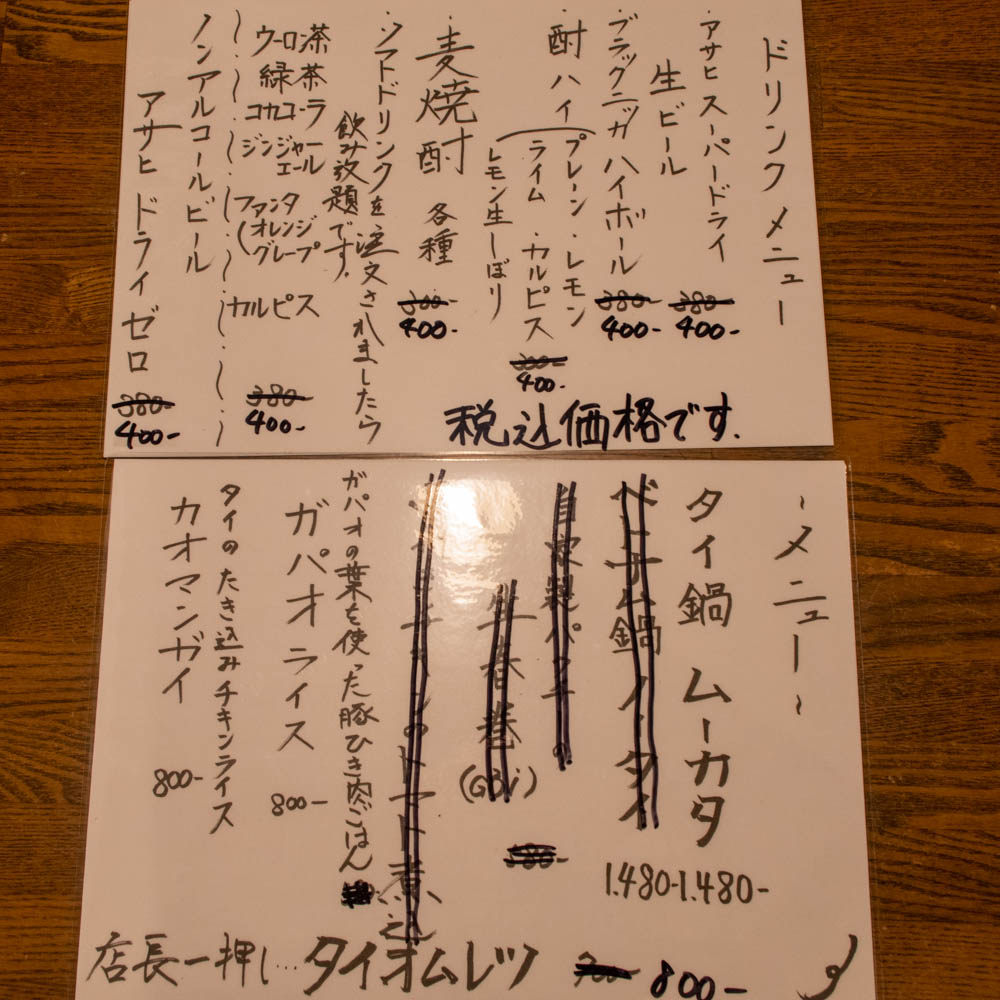 ドリンクメニュー
・アサヒスーパードライ
生ビール
380-
400-
・ブラックニッカハイボール
380-
400-
・酎ハイ
プレーン・レモン
ライム・カルピス
レモン生しぼり
300-
400-
・麦焼酎 各種
300-
400-
・ソフトドリンクを注文されましたら
飲み放題です。
ウーロン茶
緑茶
コカコーラ
ジンジャー
エール
ファンタ
オレンジ
グレープ
カルピス
380-
400-
ノンアルコールビール
アサヒ ドライゼロ
380-
400-
税込価格です.
~メニュー~
タイ鍋 ムーカタ
1.480-
ベトナム鍋
1.480-
自家製パクチーの
生春巻
のトマト煮込
ガパオの葉を使った豚ひき肉ごはん
ガパオライス
800-
タイのたき込みチキンライス
カオマンガイ
800-
店長一押し…タイオムレツ
800-